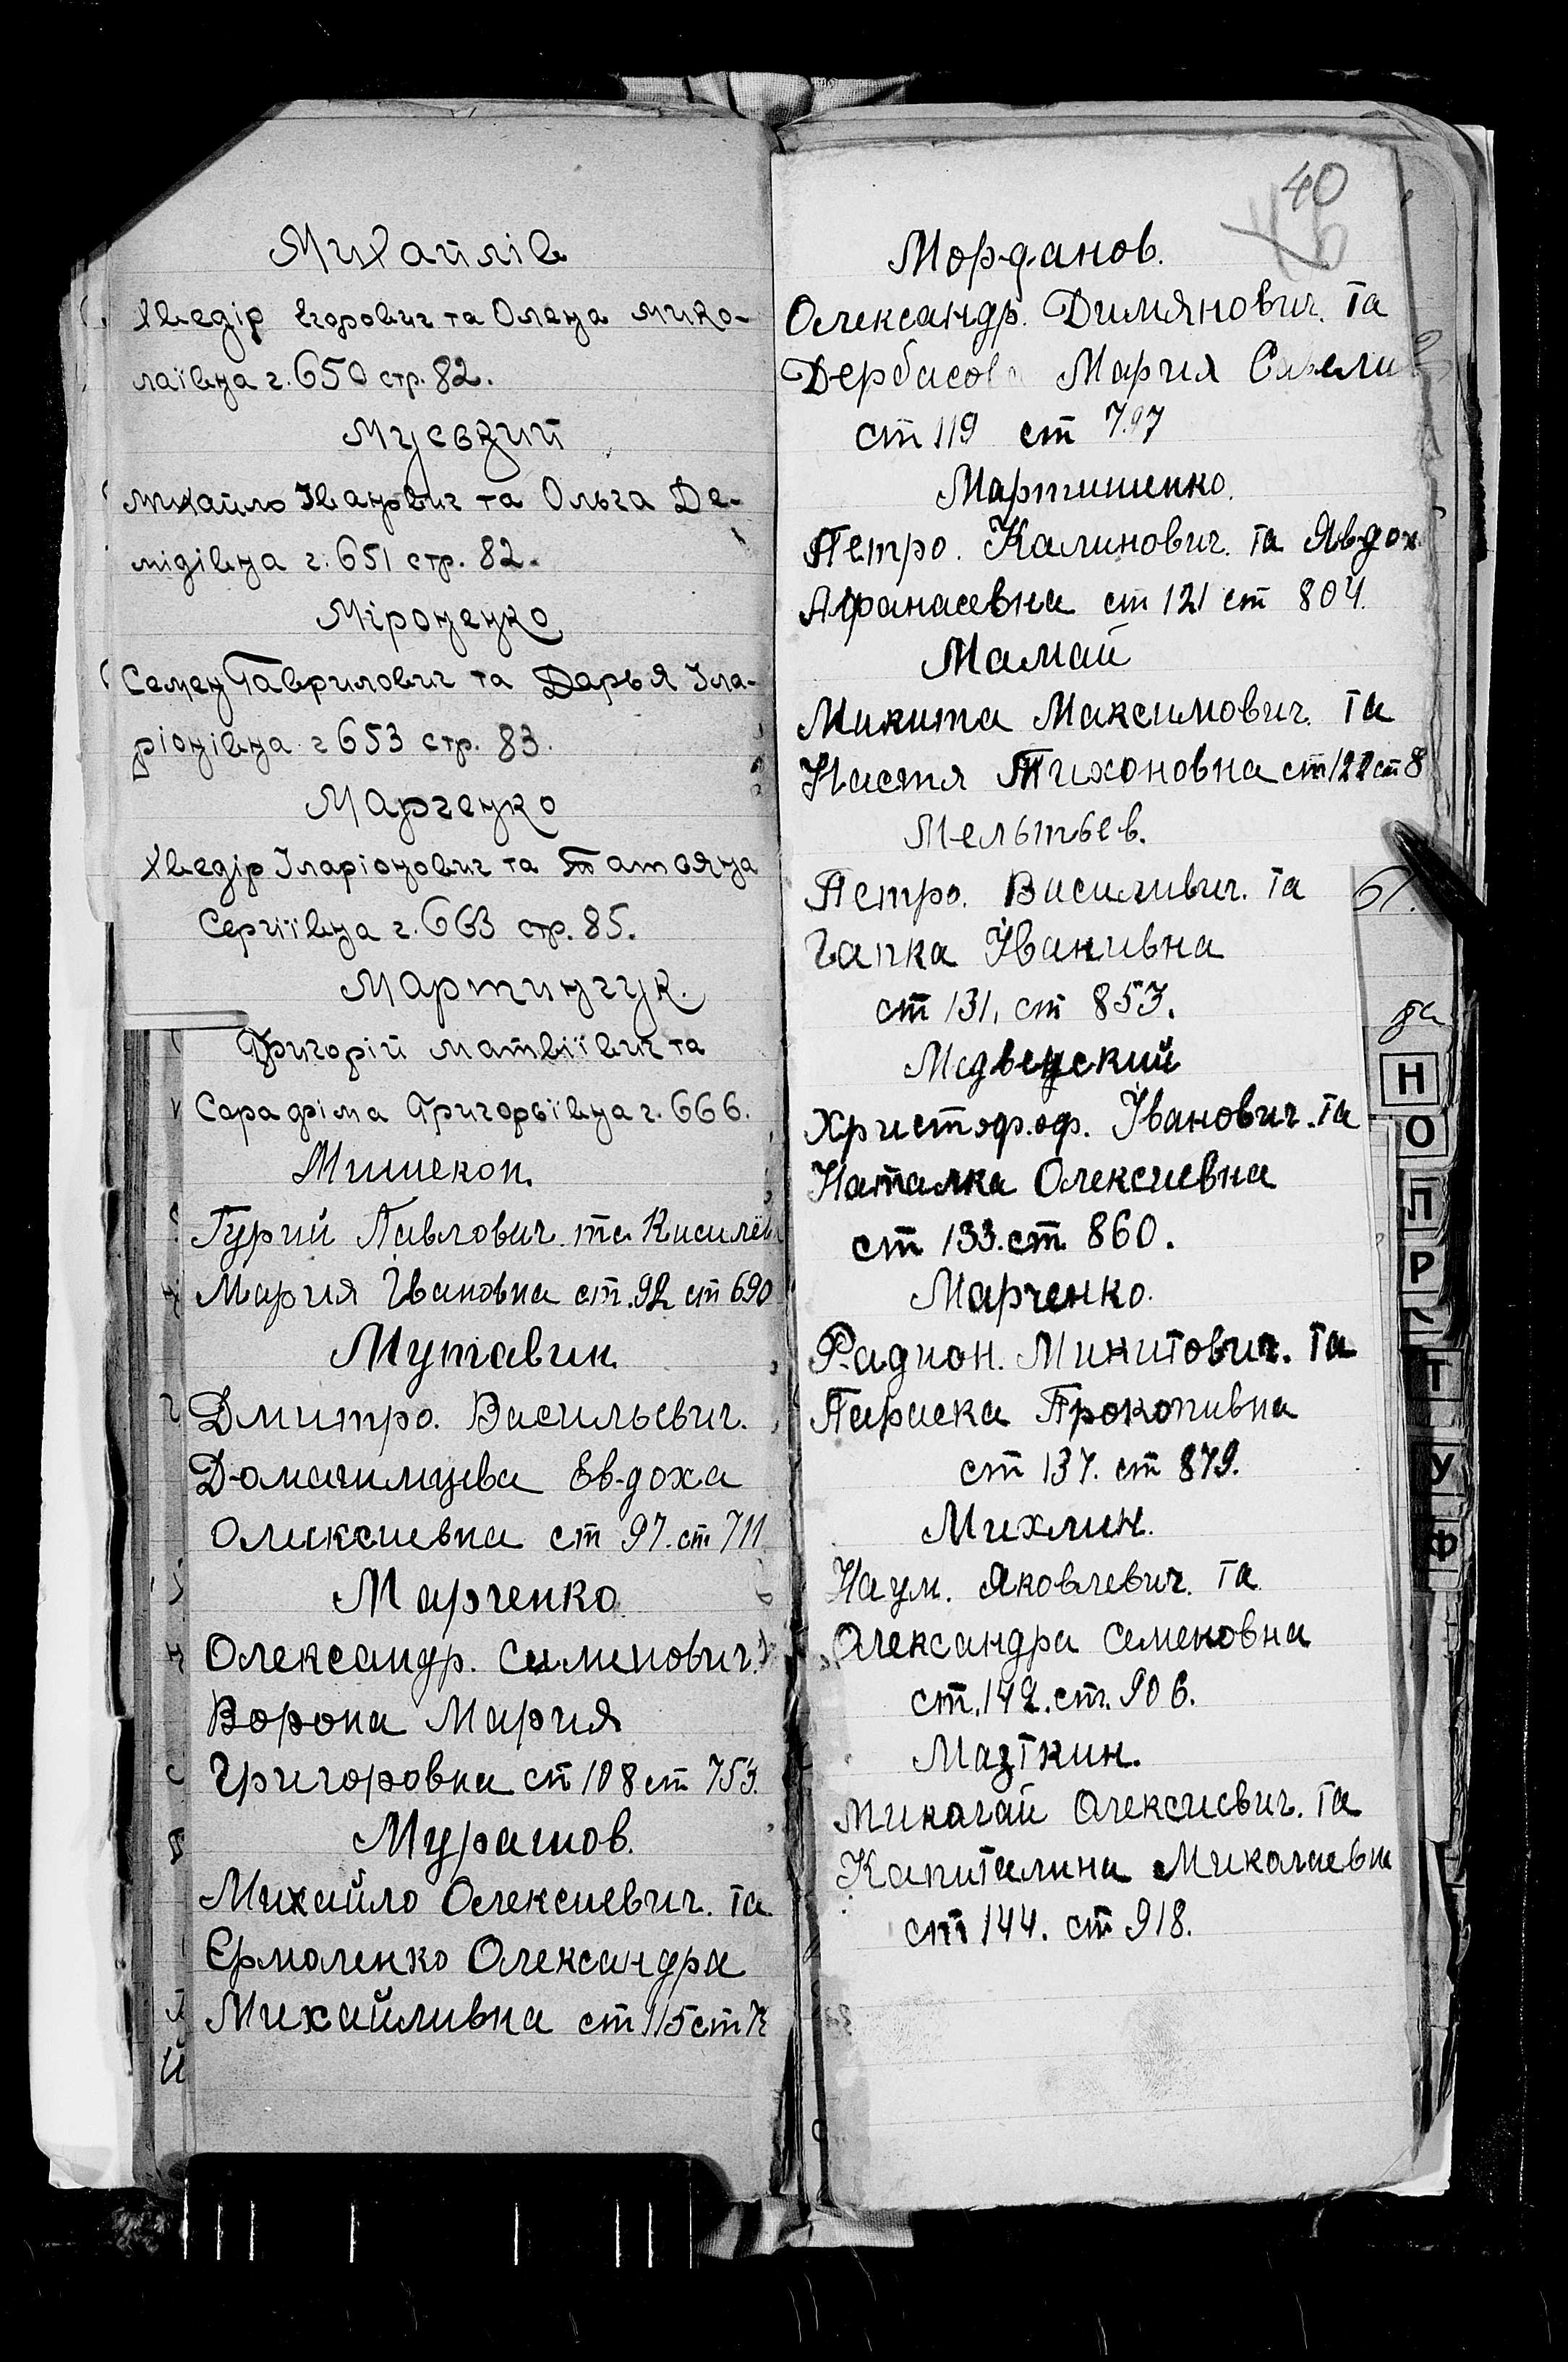 Михайлів
Хведір Єгорович та Олена Мико-
лаївна г. 650 стр. 82.
Мусвзий
Михайло Іванович та Ольга Де-
мідівна г. 651 стр. 82.
Міроненко
Семен Гаврилович та Дарья Іла-
ріонівна г 653 стр. 83.
Марченко
Хведір Іларіонович та Татьяна
Сергіївна г. 663 стр. 85.
Мартинчук.
Григорій Матвіївич та
Сарафіма Григорьївна г. 666.
Мишекоп.
Гурий Павлович та
Мария Ивановна ст. 92 ст 690
Мутавин.
Дмитро. Васильевич.
Ев-доха
Оликсиевна ст 97. ст 711
Марченко
Олександр. Семенович.
Ворона Мария
Григоровна ст 108 ст 753.
Мурашов.
Михайло Олексиевич. та
Ермоленко Олександра
Михайливна ст 115 ст
40
Морданов.
Олександр. Димянович. та
Дербасова Мария
ст 119 ст 797
Мартишенко.
Петро. Калинович. та Явдох
Афанасевна ст 121 ст 804.
Мамай
Микита Максимович. та
Настя Тихоновна ст 122 ст 8
Мельтьев.
Петро. Василивич. та
Гапка Іванивна
ст 131, ст 853.
Медвецский
Христофор. Іванович. та
Наталка Олексиевна
ст 133. ст 860.
Марченко.
Радион. Микитович. та
Параска Прокопивна
ст 137. ст 879.
Михлин.
Наум. Яковлевич. та
Олександра Семеновна
ст. 142. ст. 906.
Мазткин.
Миколай Олексиевич. та
Капиталина Миколаевн
ст 144. ст 918.
61.
Н
О
П
Р
Т
У
Ф